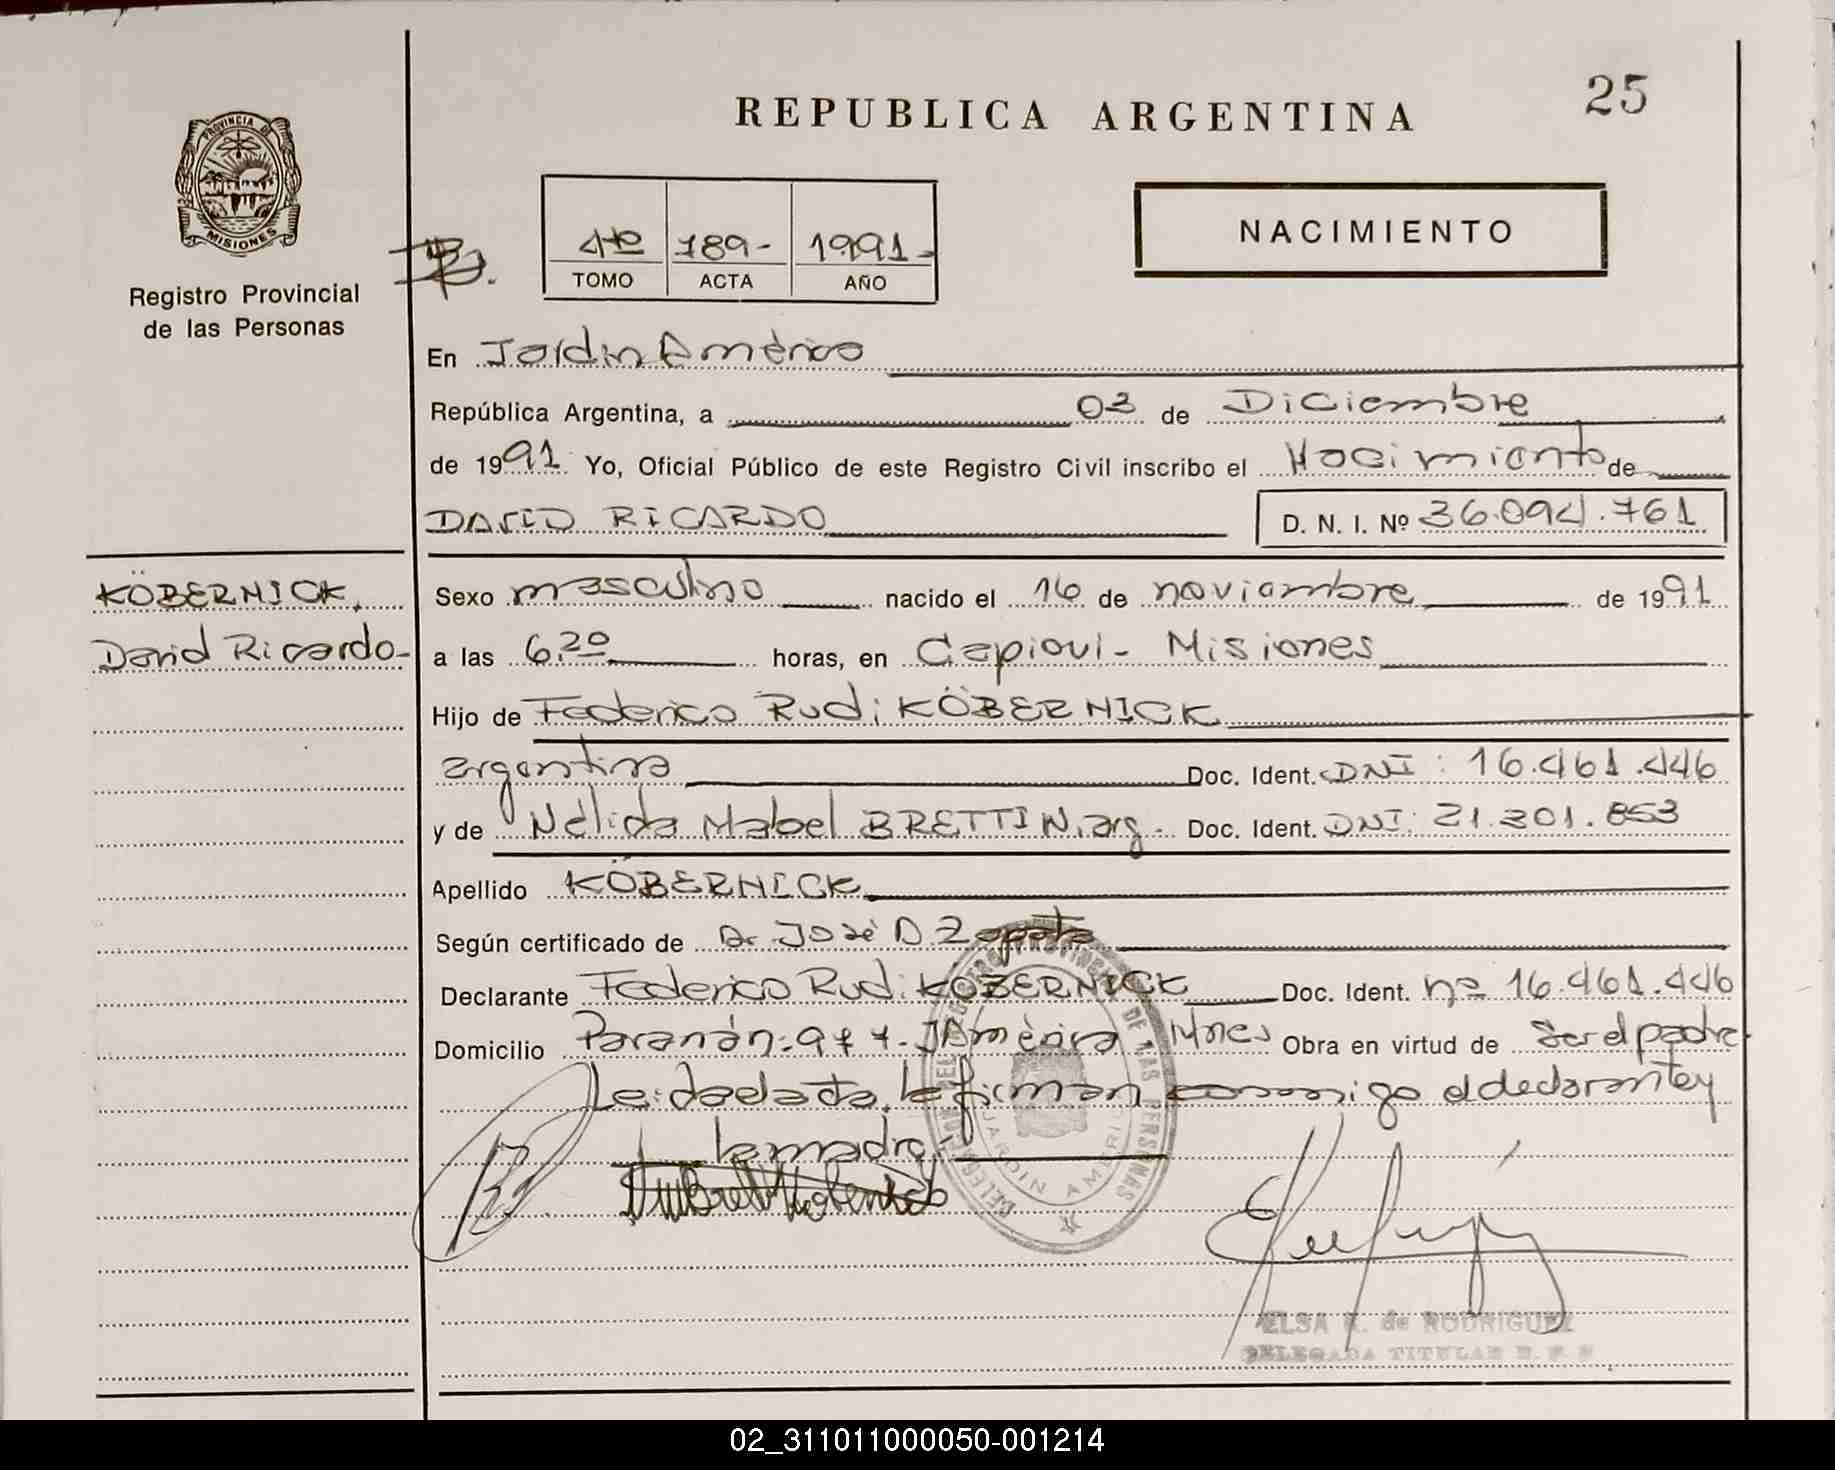 REPUBLICA ARGENTINA
25
PROVINCIA DE
MISIONES
Registro Provincial
de las Personas
4to 789- 1991-
TOMO ACTA AÑO
NACIMIENTO
En Jardín América
República Argentina, a 03 de Diciembre
de 1991. Yo, Oficial Público de este Registro Civil inscribo el Nacimiento de
DAVID RICARDO
D. N. I. Nº 36.094.761
KÖBERNICK,
David Ricardo-
Sexo masculino nacido el 16 de noviembre de 1991
a las 6,20 horas, en Capioví- Misiones
Hijo de Federico Rudi KÖBERNICK
argentina Doc. Ident. DNI: 16.461.446
y de Nélida Mabel BRETTIN, arg- Doc. Ident. DNI: 21.301.853
Apellido KÖBERNICK
Según certificado de Dr. José D. Zapata
Declarante Federico Rudi KÖBERNICK Doc. Ident. nº 16.461.446
Domicilio J América, Mnes Obra en virtud de Ser el padre
Leída el acta, la firman conmigo el declarante y
la madre.-
DE LAS PERSONAS
JARDIN AMERI
ELSA de RODRIGUEZ
DELEGADA TITULAR
02_311011000050-001214